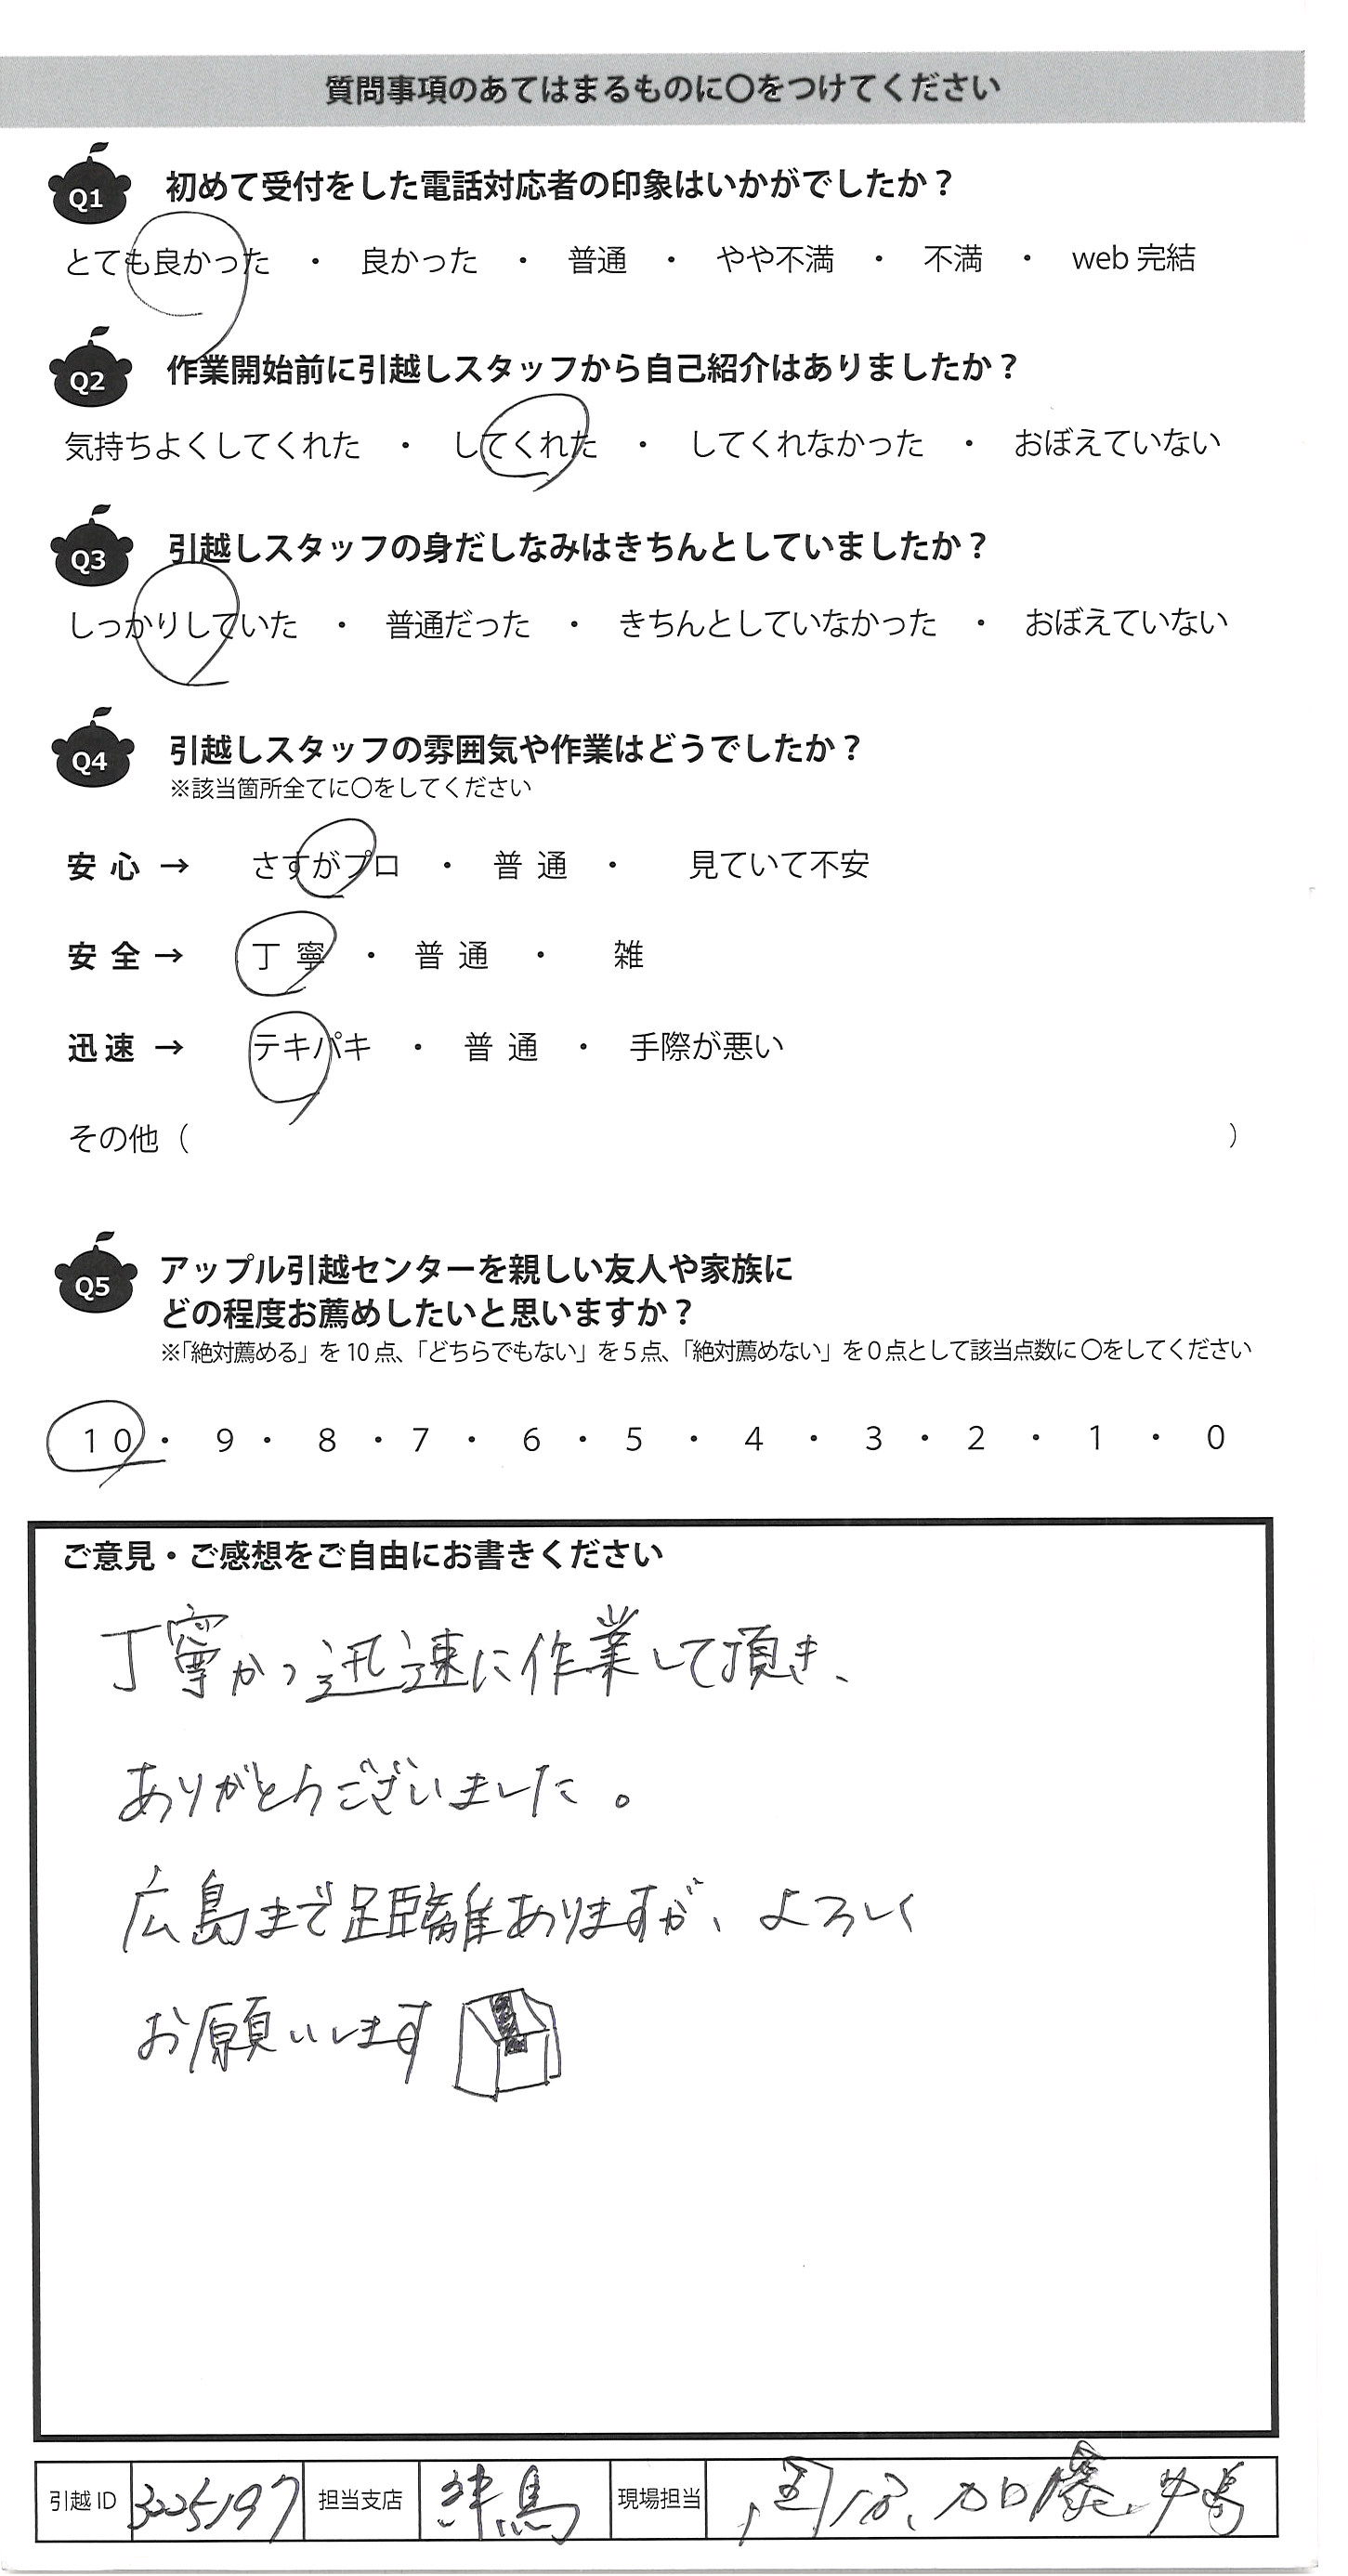 質問事項のあてはまるものに〇をつけてください
Q1 初めて受付をした電話対応者の印象はいかがでしたか？
とても良かった ・ 良かった ・ 普通 ・ やや不満 ・ 不満 ・ web 完結
Q2 作業開始前に引越しスタッフから自己紹介はありましたか？
気持ちよくしてくれた ・ してくれた ・ してくれなかった ・ おぼえていない
Q3 引越しスタッフの身だしなみはきちんとしていましたか？
しっかりしていた ・ 普通だった ・ きちんとしていなかった ・ おぼえていない
Q4 引越しスタッフの雰囲気や作業はどうでしたか？
※該当箇所全てに〇をしてください
安心 → さすがプロ ・ 普通 ・ 見ていて不安
安全 → 丁寧 ・ 普通 ・ 雑
迅速 → テキパキ ・ 普通 ・ 手際が悪い
その他（ ）
Q5 アップル引越センターを親しい友人や家族に
どの程度お薦めしたいと思いますか？
※「絶対薦める」を 10 点、「どちらでもない」を 5 点、「絶対薦めない」を 0 点として該当点数に 〇をしてください
10 ・ 9 ・ 8 ・ 7 ・ 6 ・ 5 ・ 4 ・ 3 ・ 2 ・ 1 ・ 0
ご意見・ご感想をご自由にお書きください
丁寧かつ迅速に作業して頂き、
ありがとうございました。
広島まで距離ありますが、よろしく
お願いします
引越 ID 3225197 担当支店 練馬 現場担当